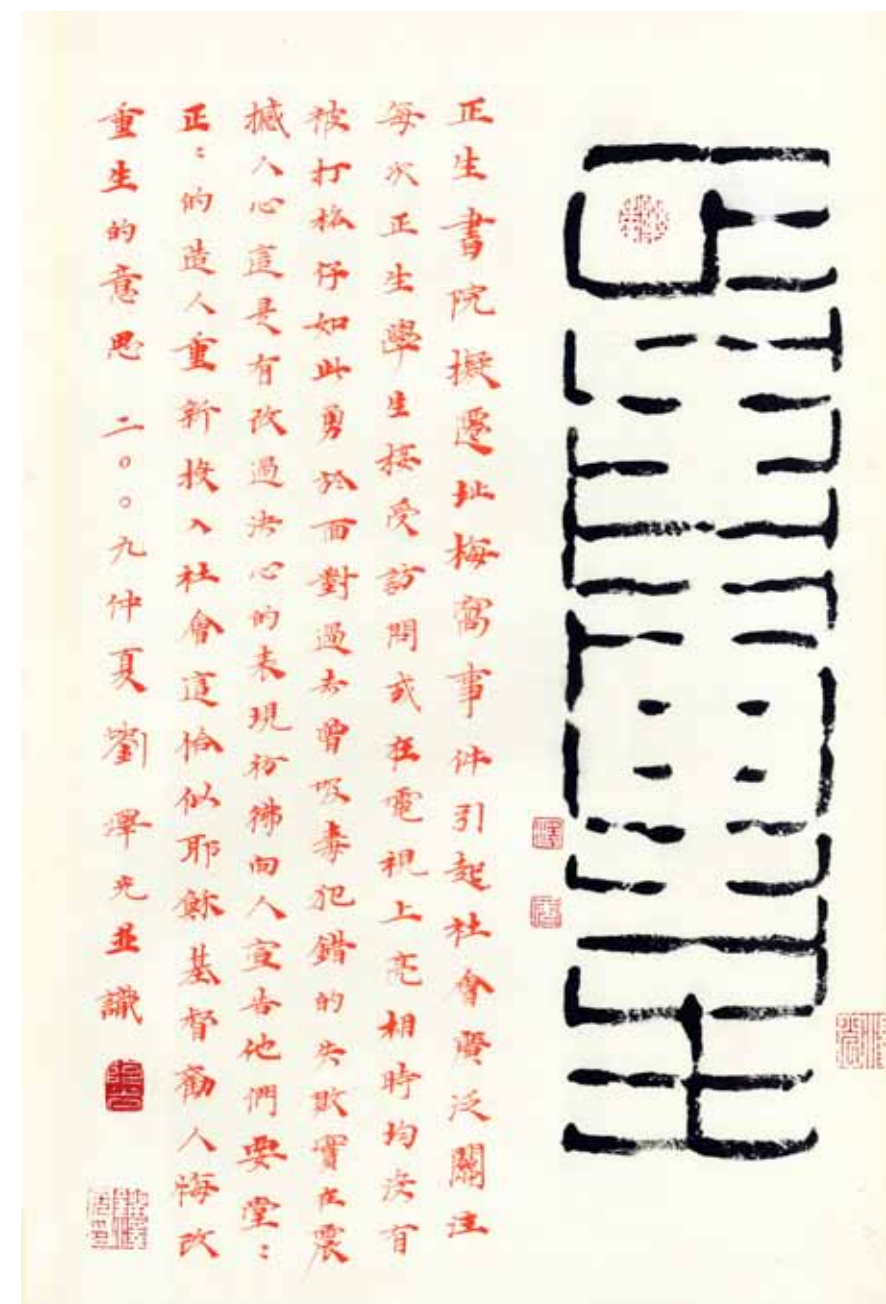 正生書院擬遷址梅窩事件引起社會廣泛關注
每次正生學生接受訪問或在電視上亮相時均沒有
被打格仔如此勇於面對過去曾吸毒犯錯的失敗實在震
撼人心這是有改過決心的表現彷彿向人宣告他們要堂：
正：的造人重新投入社會這恰似耶穌基督勸人悔改
重生的意思 二〇〇九仲夏劉澤光並識